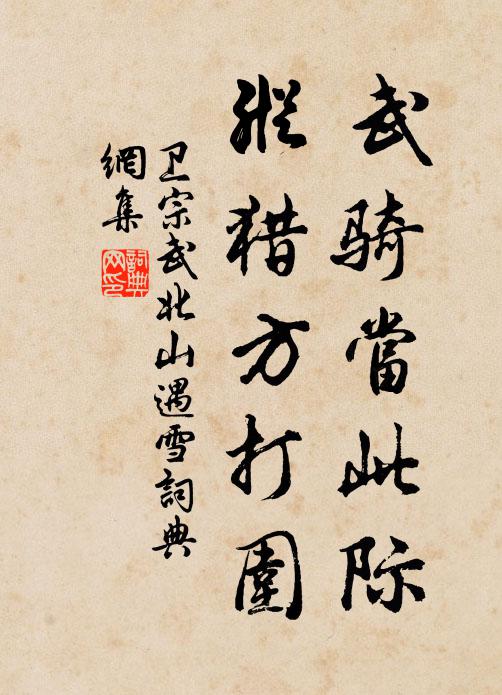 武骑當此际
猎猎方打圍
卫宗武北山遇雪詞典
網集
詞典
网印